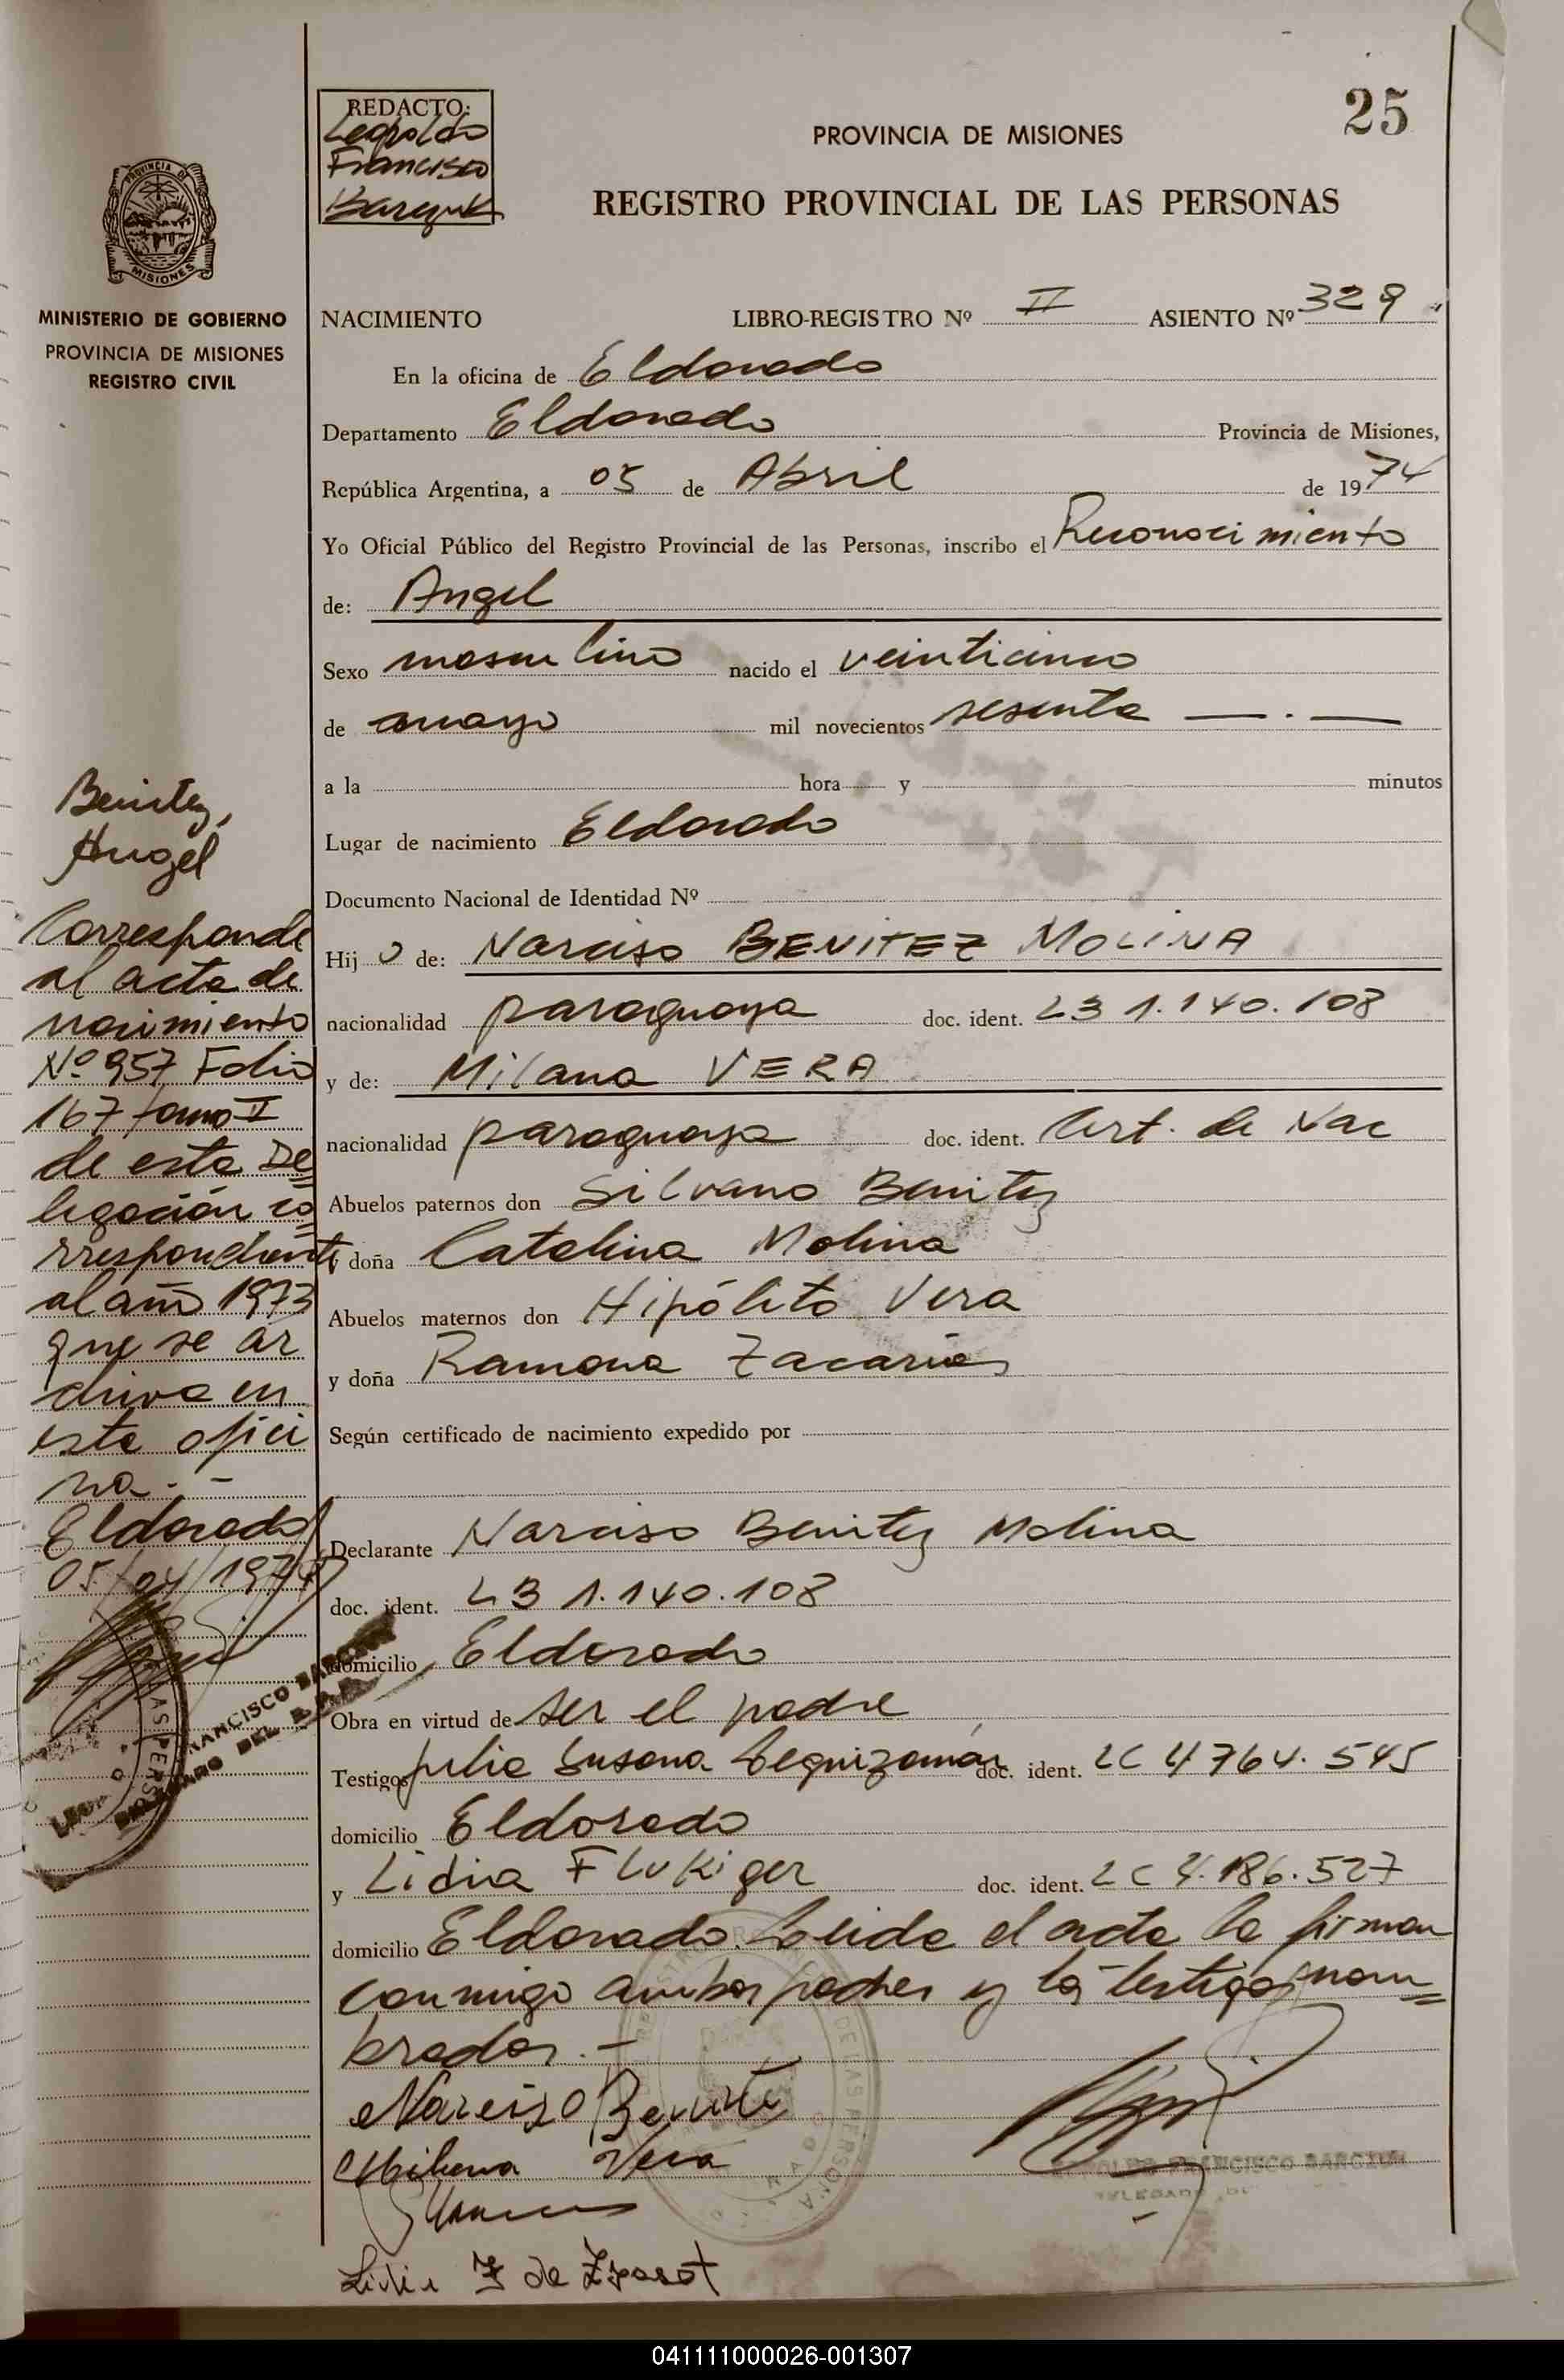 25
REDACTO:
Leopoldo
Francisco
PROVINCIA DE MISIONES
REGISTRO PROVINCIAL DE LAS PERSONAS
PROVINCIA DE
MISIONES
MINISTERIO DE GOBIERNO
PROVINCIA DE MISIONES
REGISTRO CIVIL
NACIMIENTO LIBRO-REGISTRO Nº II ASIENTO Nº 329
En la oficina de Eldorado
Departamento Eldorado Provincia de Misiones,
República Argentina, a 05 de Abril de 1974
Yo Oficial Público del Registro Provincial de las Personas, inscribo el Reconocimiento
de: Angel
Sexo masculino nacido el veinticinco
de mayo mil novecientos sesenta
a la hora y minutos
Lugar de nacimiento Eldorado
Documento Nacional de Identidad Nº
Hijo de: Narciso BENITEZ MOLINA
nacionalidad paraguaya doc. ident. LB 1.140.108
y de: Milana VERA
nacionalidad paraguaya doc. ident. Cert. de Nac
Abuelos paternos don Silvano Benitez
y doña Catalina Molina
Abuelos maternos don Hipólito Vera
y doña Ramona Zacarias
Según certificado de nacimiento expedido por
Declarante Narciso Benitez Molina
doc. ident. LB 1.140.108
domicilio Eldorado
Obra en virtud de ser el padre
Testigos Julia Susana Leguizamón doc. ident. LC 4764.545
domicilio Eldorado
y Lidia Flukiger doc. ident. LC 4.186.527
domicilio Eldorado. Leida el acta la firman
conmigo ambos padres y los testigos nom=
brados.-
Narciso Benite
Milena Vera
Lidia F de
FRANCISCO BARCZUK
Benitez,
Angel
Corresponde
al acta de
nacimiento
Nº 957 Folio
167 tomo I
de esta De=
legación co=
rrespondiente
al año 1973
que se ar
chiva en
esta ofici
na.-
Eldorado
05/04/1974
041111000026-001307